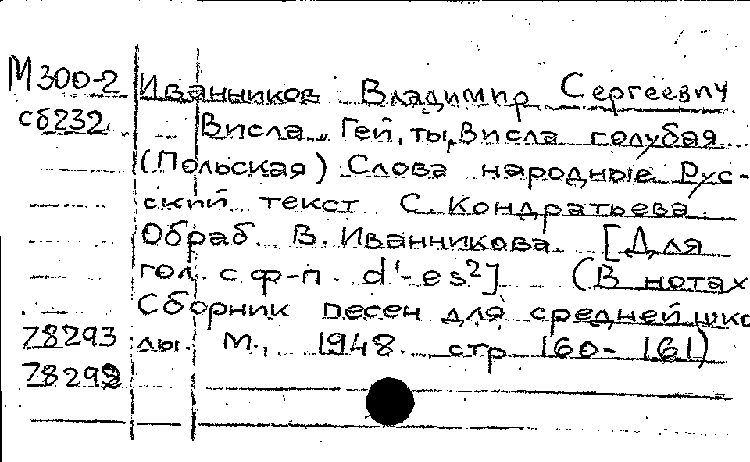 М300-2 Иванников Владимир Сергеевич
сб232 Висла. Гей, ты, Висла голубая
(Польская) Слова народные Рус-
ский текст С. Кондратьева.
Обраб. В. Иванникова. [Для
гол. с ф-п. d'-es²] (В нотах
Сборник песен для средней шко
78293 лы. М., 1948. стр 160-161)
78292